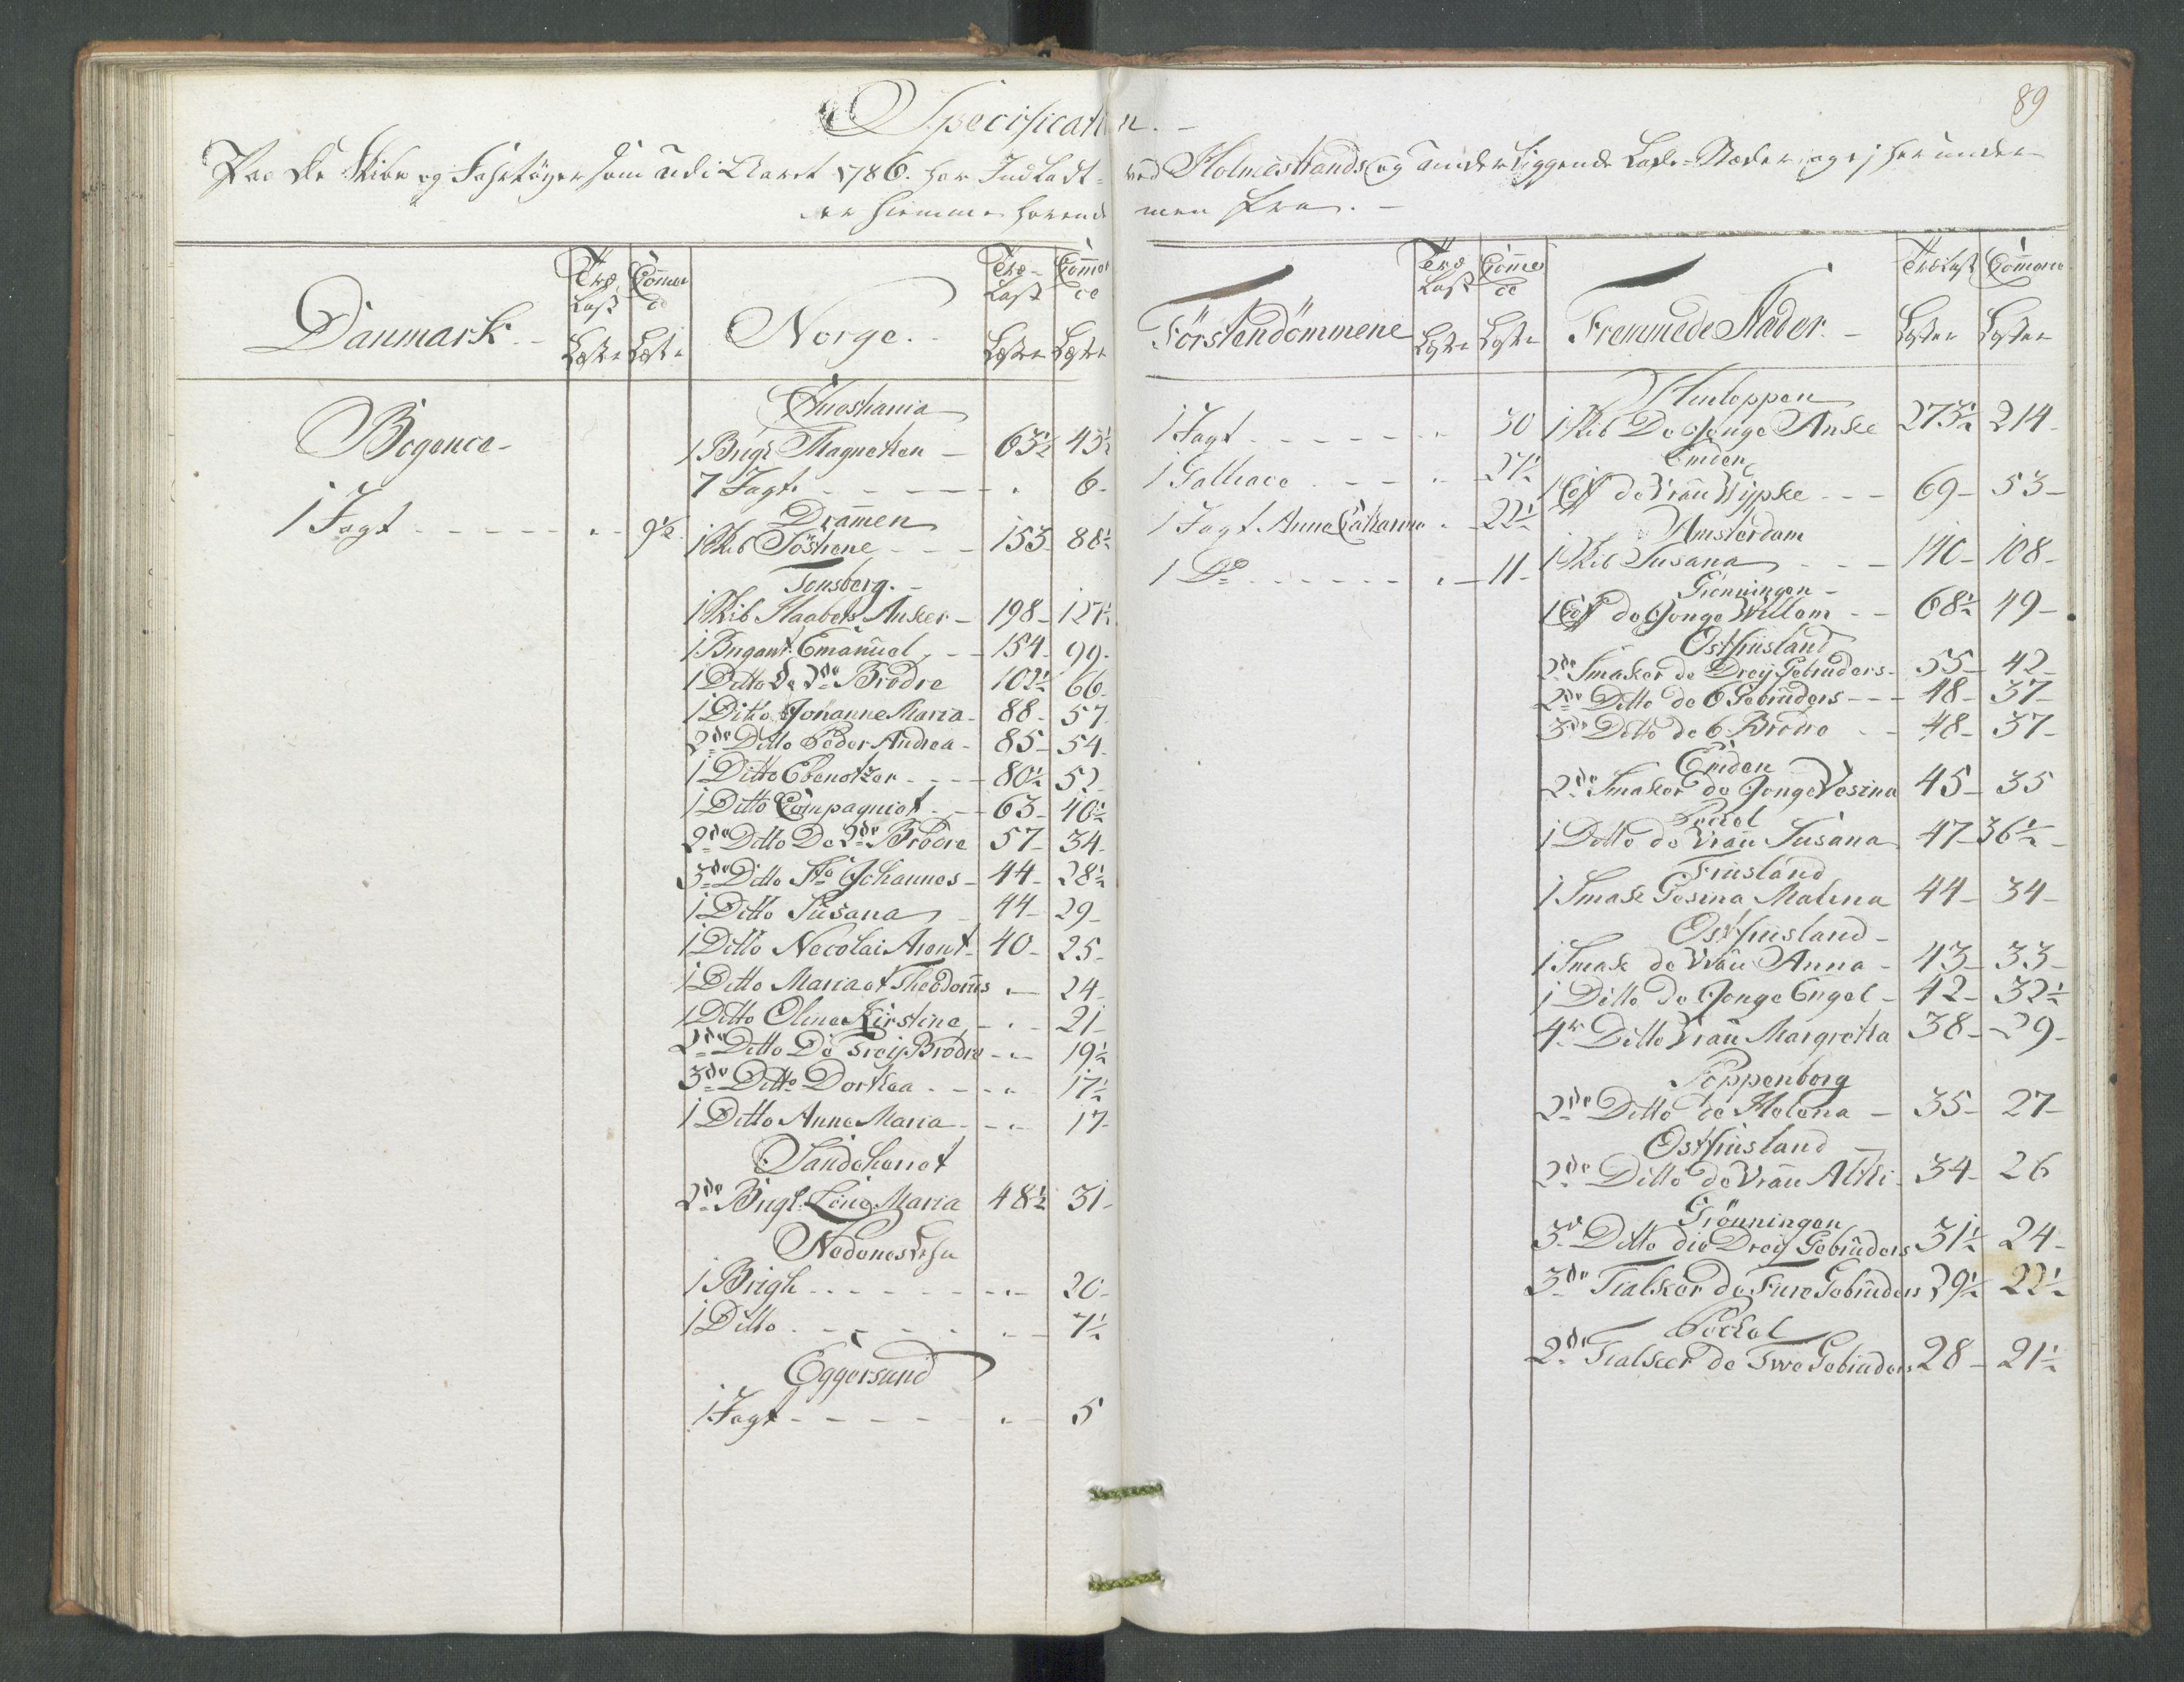 89
Specification.
Paa de Skibe og Fahrtöyer som udi Aaret 1786. har Indladt ved Holmestrands og underliggende Lade-Stæder, og ej herunder
ere hiemme hörende men fra.
Danmark.
Træ Last
Com̅er ce
Læster
Læster
Bogence
1 Jagt - - - - 9½
Norge.
Træ- Last
Com̅er ce
Læster
Læster
Christiania
1 Brigt Magneten - 63½ 43½
7 Jagt - - - - 6-
Dram̅en
1 Skib Söstrene - - - 153 88½
Tonsberg.
1 Skib Haabets Anker - 198- 127½
1 Brigant. Emanuel - - 154- 99-
1 Ditto De 2de Brödre 102½ 66-
1 Ditto Johanne Maria - 88- 57
2de Ditto Peder Andrea - 85- 54-
1 Ditto Ebenetzer - - - 80½ 52-
1 Ditto Compagniet - - 63- 40½
2de Ditto De 2de Brödre 57- 34-
3de Ditto St Johannes - 44- 28½
1 Ditto Susana - 44- 29-
1 Ditto Necolai Arent - 40- 25-
1 Ditto Maria et Theodorus - 24-
1 Ditto Oline Kirstine - - 21-
2de Ditto De Treij Brodre - - 19½
3de Ditto Dorthea - - - 17½
1 Ditto Anne Maria - - - 17-
Sandeherret
2de Brigt. Lone Maria 48½ 31-
Nedenes Lehn
1 Brigh - - - - - 20-
1 Ditto - - - - - 7½
Eggersund
1 Jagt - - - - - 5
Förstendömmene
Træ Last
Com̅er ce
Læster
Læster
1 Jagt - - - - - 30
1 Galleace - - - - 27½
1 Jagt Anne Catharina - 22½
1 Do - - - - - 11-
Fremmede Stæder.
Trælast
Com̅erce
Læster
Læster
Hinloppen
1 Skib De Jonge Anske 273½ 214-
Emden
1 Coff de Vrau Wypke - - - 69- 53-
Amsterdam
1 Skib Susana - - - 140- 108-
Gröningen
1 Coff de Jonge Willem - - 68½ 49-
Ostfriesland
2de Smaker de Dreij Gebruders - 55- 42-
2de Ditto de 6 Gebruders - - - 48- 37-
3de Ditto de 6 Brödre - - 48- 37-
Emden
2de Smaker de Jonge Vesina 45- 35
Peckel
1 Ditto de Vrau Susana 47- 36½
Friesland
1 Smak Gesina Malena 44- 34-
Ostfriesland
1 Smak de Vrau Anna - 43- 33-
1 Ditto de Jonge Engel - 42- 32½
4r Ditto Vrau Margretha 38- 29-
Poppenborg
2de Ditto de Helena - 35- 27-
Ostfriesland
2de Ditto de Vrau Altki - 34- 26
Grönningen
3de Ditto die Dreij Gebruders 31½ 24-
3de Tialker de Fire Gebruders 29½ 22½
Peckel
2de Tialker de Twe Gebruders 28- 21½